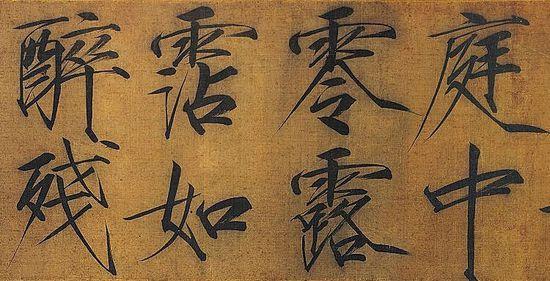 庭中
零露
霑如
醉殘